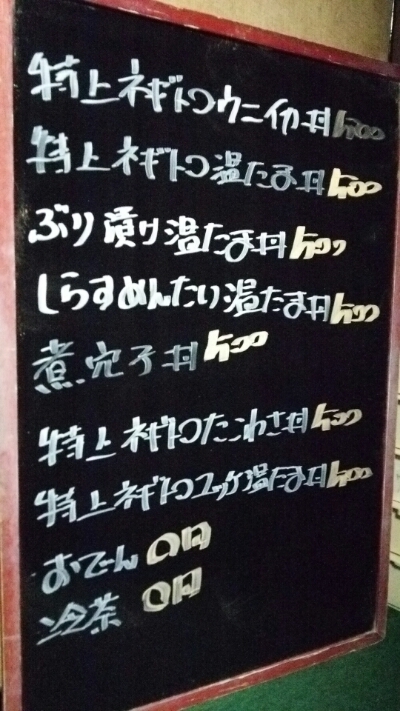 特上ネギトロウニイカ丼500
特上ネギトロ温たま丼500
ぶり漬け温たま丼500
しらすめんたい温たま丼500
煮穴子丼500
特上ネギトロたこわさ丼500
特上ネギトロユッケ温たま丼500
おでん0円
冷茶 0円